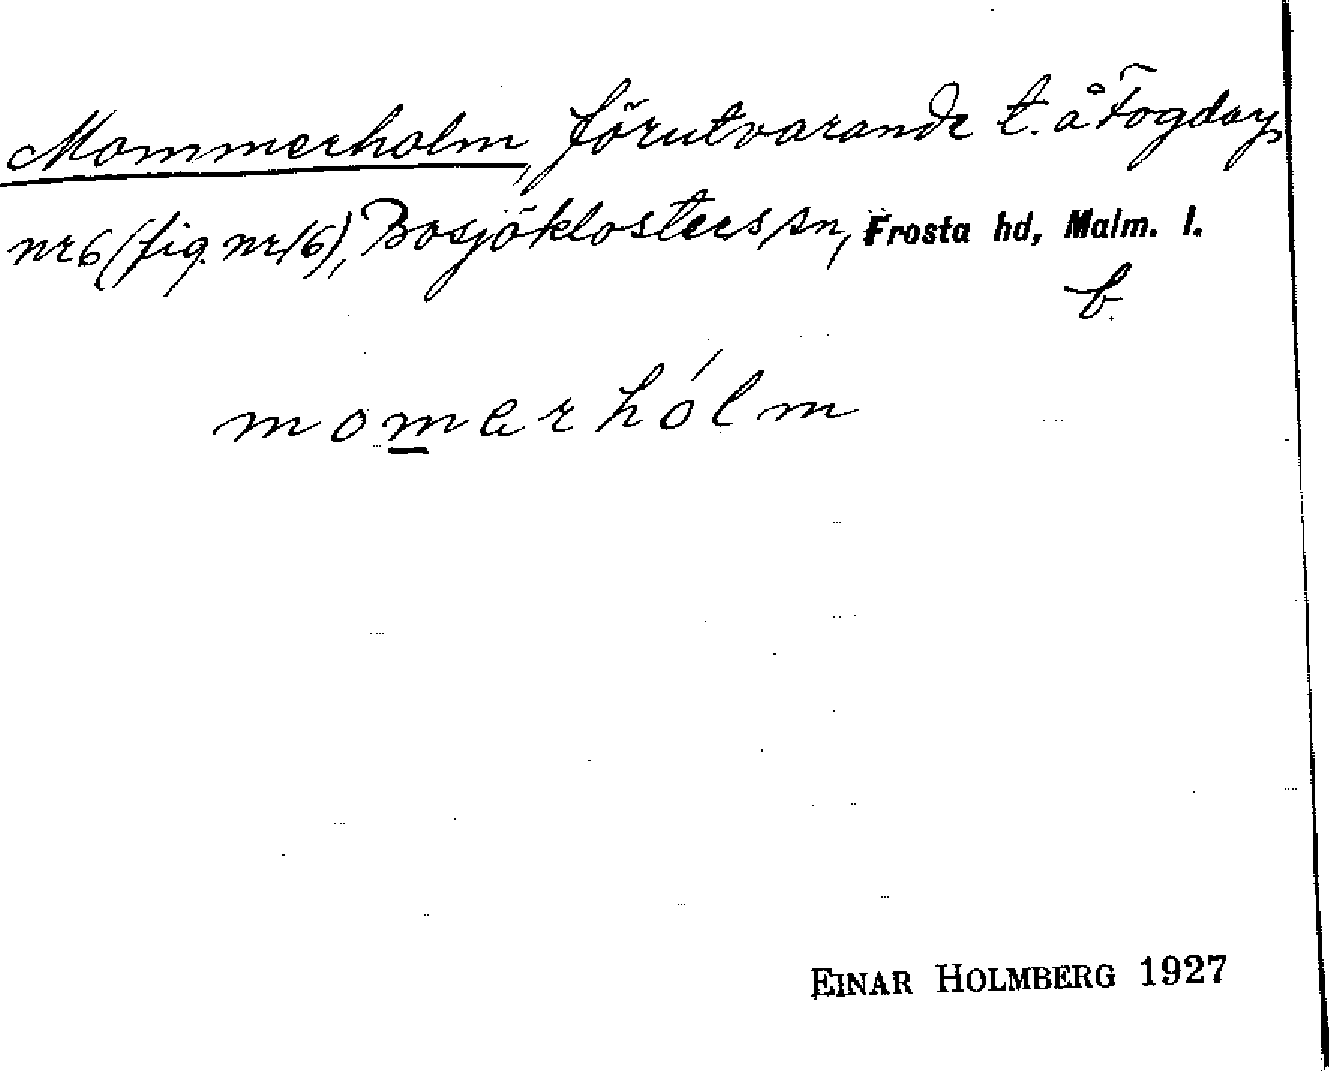 Mommerholm, förutvarande t. å Fogdarp
nr 6 (fig. nr 16), Bosjöklosters sn, Frosta hd, Malm. l.
b.
momarhólm
EINAR HOLMBERG 1927